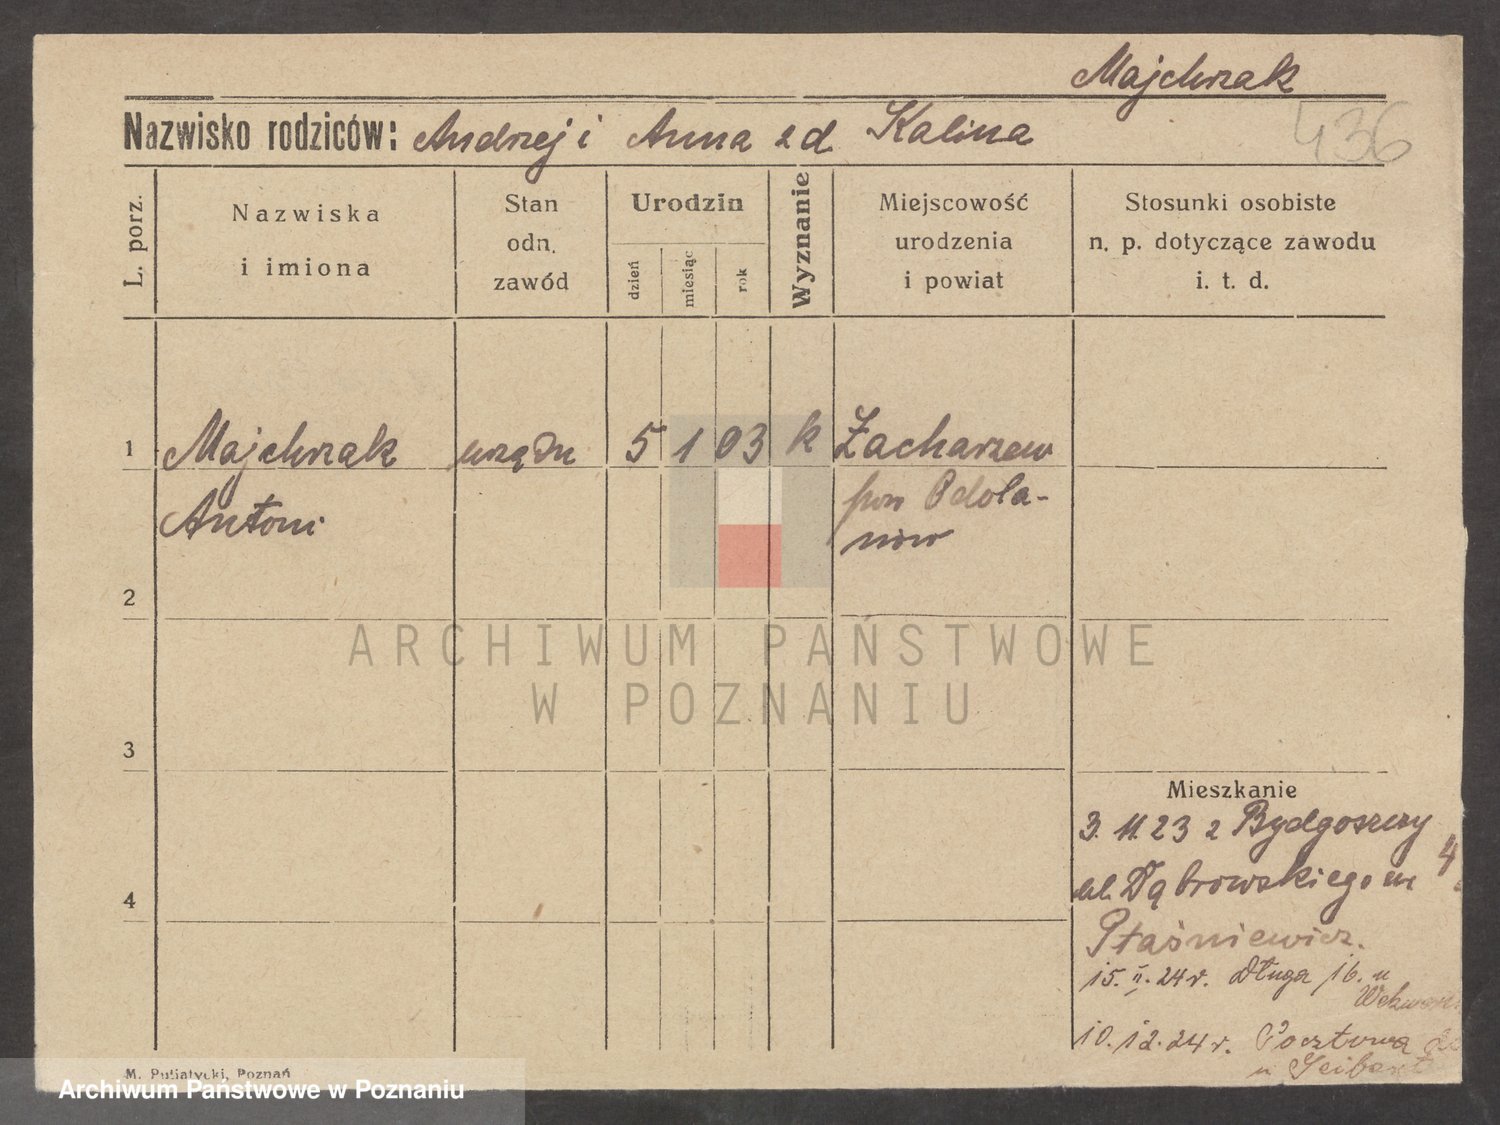 Majchrzak
Nazwisko rodziców: Andrzej i Anna zd Kalina
436
L. porz.
Nazwiska
i imiona
Stan
odn.
zawód
Urodzin
dzień
miesiąc
rok
Wyznanie
Miejscowość
urodzenia
i powiat
Stosunki osobiste
n. p. dotyczące zawodu
i. t. d.
1 Majchrzak urzędn 5 1 03 k Zacharzew
pow Odola-
Antoni
nów
2
ARCHIWUM PAŃSTWOWE
W POZNANIU
3
Mieszkanie
3. 11. 23 z Bydgoszczy
ul. Dąbrowskiego nr 4
4
Ptaśniewicz.
15. II. 24 r. Długa 16. u
10. 12. 24 r. Pocztowa
u Seibert
M. Putiatycki, Poznań
Archiwum Państwowe w Poznaniu